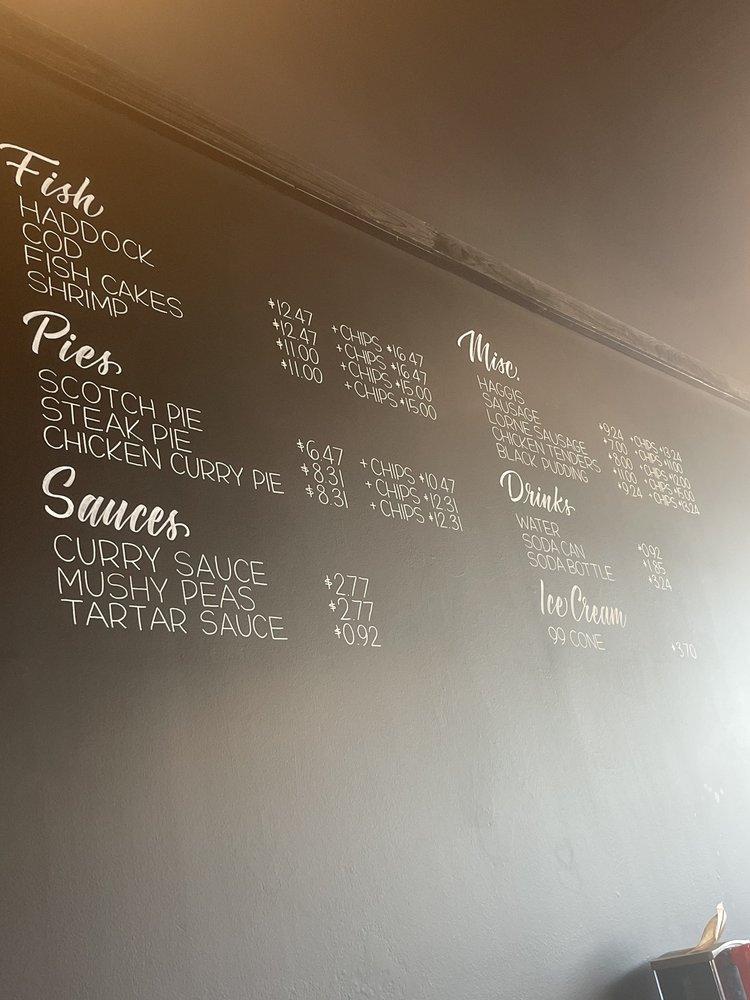 Fish
HADDOCK $12.47 + CHIPS $16.47
COD $12.47 + CHIPS $16.47
FISH CAKES $11.00 + CHIPS $15.00
SHRIMP $11.00 + CHIPS $15.00
Pies
SCOTCH PIE $6.47 + CHIPS $10.47
STEAK PIE $8.31 + CHIPS $12.31
CHICKEN CURRY PIE $8.31 + CHIPS $12.31
Sauces
CURRY SAUCE $2.77
MUSHY PEAS $2.77
TARTAR SAUCE $0.92
Misc.
HAGGIS $9.24 + CHIPS $13.24
SAUSAGE $7.00 + CHIPS $11.00
LORNE SAUSAGE $8.00 + CHIPS $12.00
CHICKEN TENDERS $11.00 + CHIPS $15.00
BLACK PUDDING $9.24 + CHIPS $13.24
Drinks
WATER $0.92
SODA CAN $1.85
SODA BOTTLE $3.24
Ice Cream
99 CONE $3.70